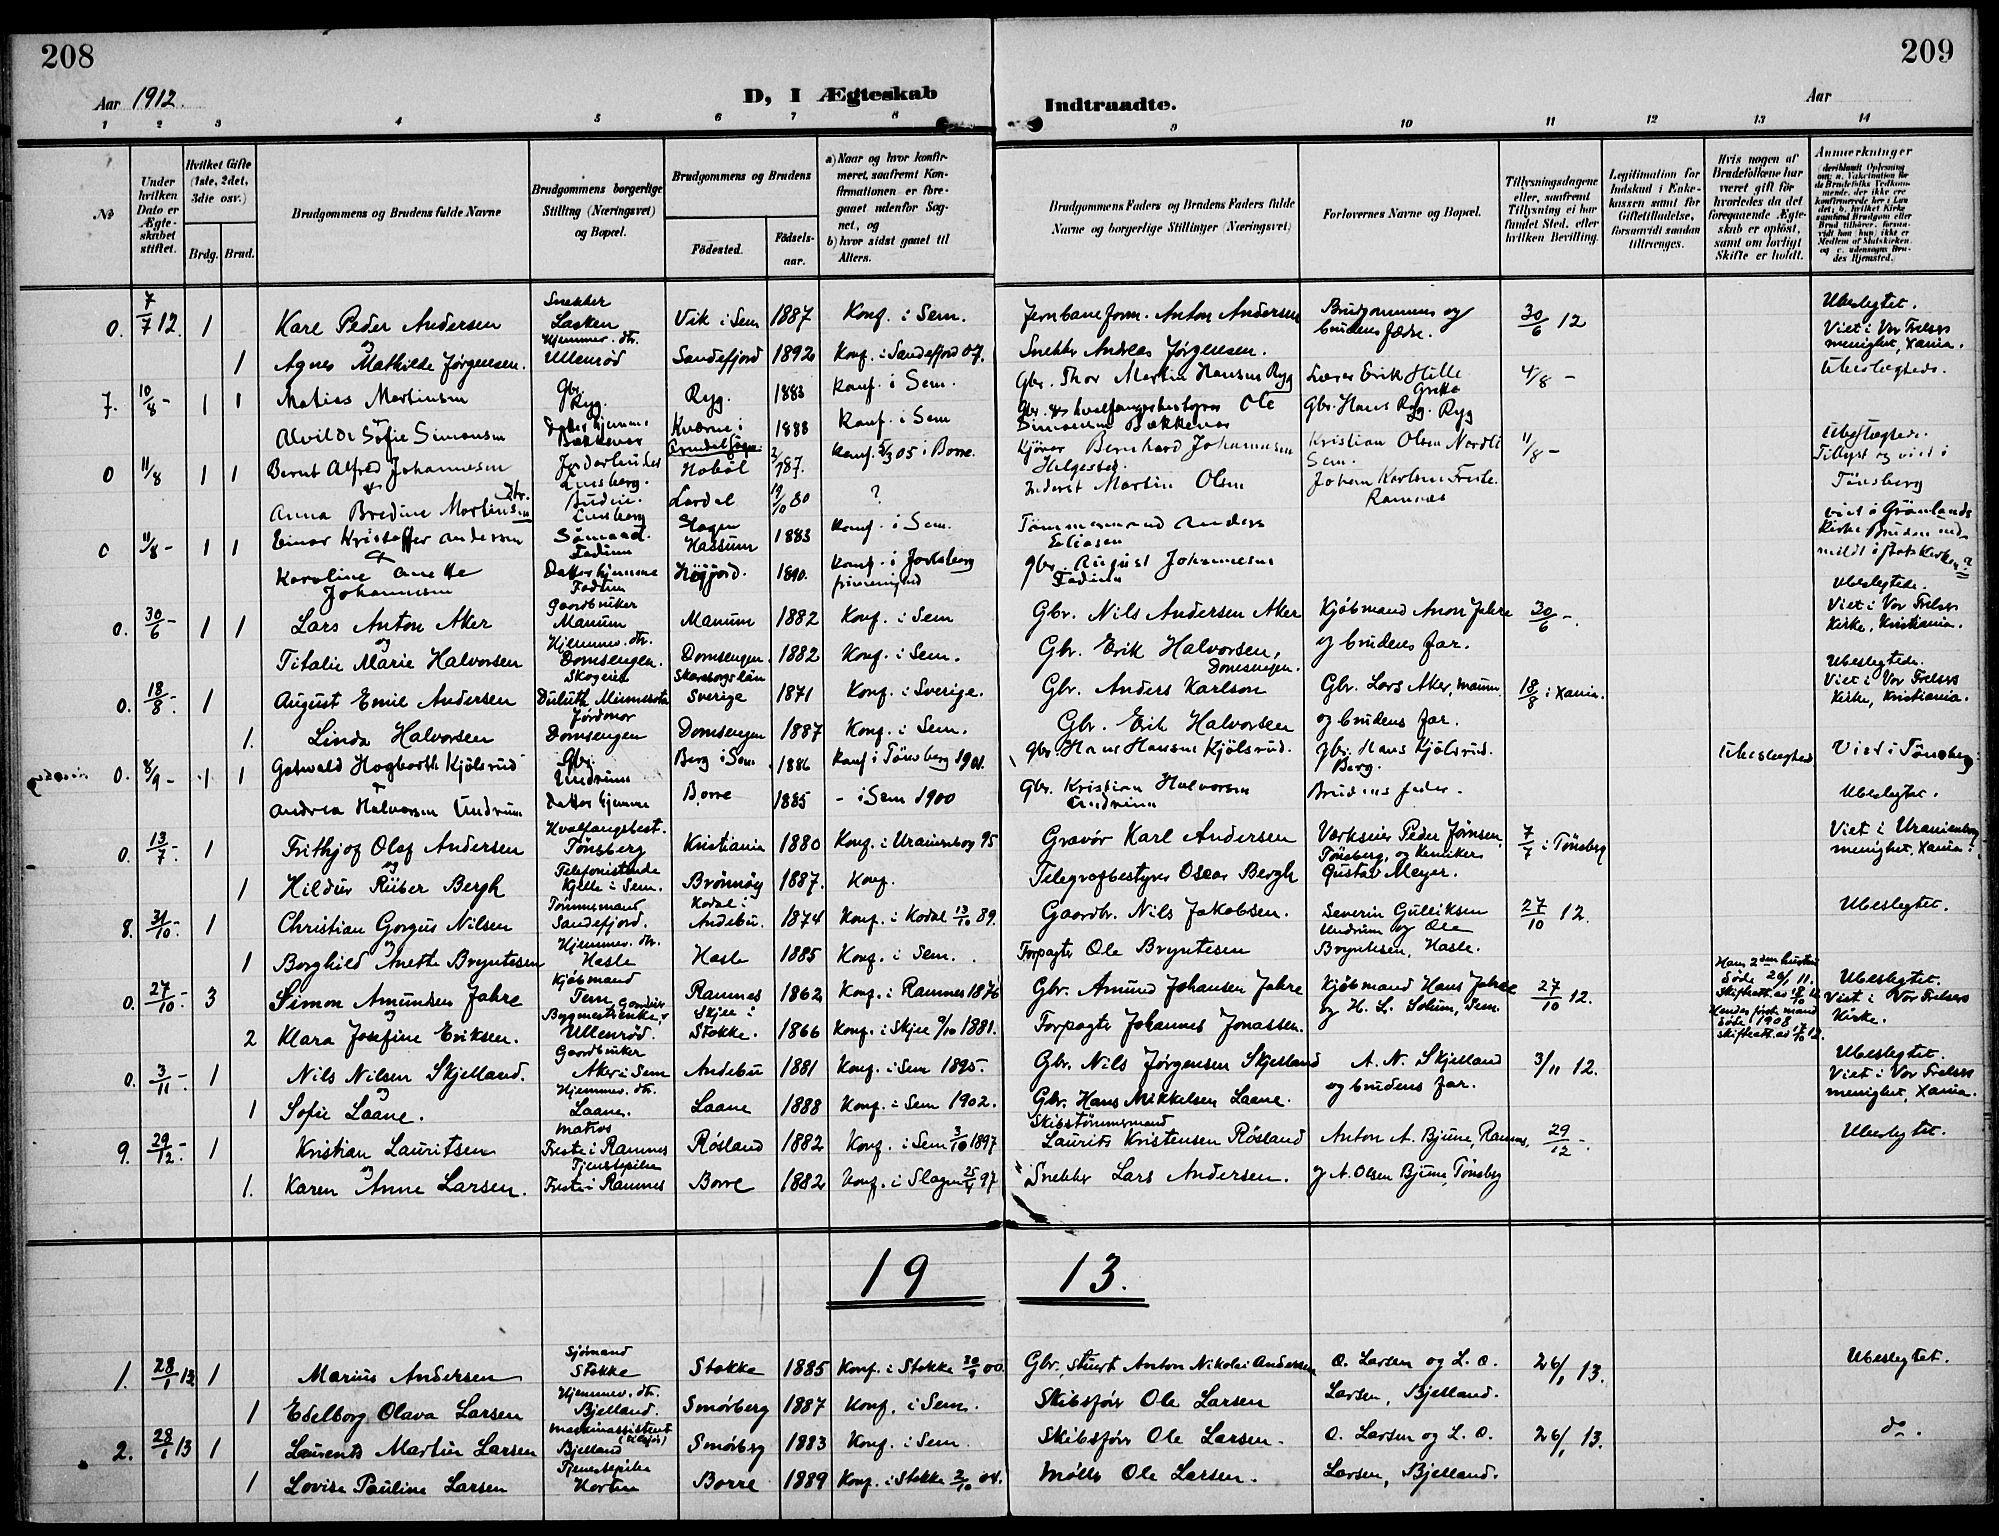 208
209
Aar 1912.
D, I Ægteskab
Indtraadte.
Aar
1 2 3 4 5 6 7 8 9 10 11 12 13 14
№
Under hvilken Dato er Ægteskabet stiftet.
Hvilket Gifte (1ste, 2det, 3die osv.)
Brdg. Brud.
Brudgommens og Brudens fulde Navne
Brudgommens borgerlige Stilling (Næringsvei) og Bopæl.
Brudgommens og Brudens
Fødested.
Fødsels-aar.
a) Naar og hvor konfirmeret, saafremt Konfirmationen er foregaaet udenfor Sognet, og
b) hvor sidst gaaet til Alters.
Brudgommens Faders og Brudens Faders fulde Navne og borgerlige Stillinger (Næringsvei)
Forlovernes Navne og Bopæl.
Tillysningsdagene eller, saafremt Tillysning ei har fundet Sted, efter hvilken Bevilling.
Legitimation for Indskud i Enkekassen samt for Giftetilladelse, forsaavidt saadan tiltrænges.
Hvis nogen af Brudefolkene har været gift før hvorledes da det foregaaende Ægteskab er opløst, samt om lovligt Skifte er holdt.
Anmærkninger
0. 7/7 12. 1 Karl Peder Andersen Snekker Lasken Vik i Sem 1887 Konf. i Sem. Jernbaneform. Anton Andersen Brudgommens og brudens fædre. 30/6 12 Ubeslegtet. Viet i Vor Frelsers menighet, Xania.
og
1 Agnes Mathilde Jørgensen. Hjemmev. dtr. Ullenrød Sandefjord 1892 Konf. i Sandefjord 07. Snekker Andreas Jørgensen.
7. 10/8 - 1 1 Matias Martinsen Gbr. Ryg. Ryg. 1883 Konf. i Sem. Gbr. Thor Martin Hansen Ryg Lærer Erik Hille Gbr. Hans Ryg, Ryg 4/8 - Ubeslegtede.
Alvilde Sofie Simonsen Bækkevar 1888 Konf. i Sem Gbr. & hvalfangerbestyrer Ole Simonsen Bækkevar
0 11/8 1 1 Bernt Alfred Johannesen Hobøl 87. Konf. 05 i Borre. Kjører Bernhard Johannesen Helgested. Kristian Olsen Sem. 11/8 - Ubeslegtede. Tillyst og viet i Tønsberg
&
Anna Bredine Martinsen Lardal 19/10 80 ? Inderst Martin Olsen Johan Karlsen Freste Ramnes
0 11/8 - 1 1 Einar Kristoffer Andersen Sømand. Fadum Slagen 1883 Konf. i Sem. Tømmermand Anders Eliasen viet i Grønlands Kirke
&
Karoline Anette Johannesen Datter hjemme Fadum Høijord. 1890. Konf. i Jarlsberg frimenighed gbr. August Johannesen Fadum
0. 30/6 - 1 1 Lars Anton Aker Gaardbruker Manum Manum 1882 Konf. i Sem Gbr. Nils Andersen Aker Kjøbmand Anon Jahre og brudens far. 30/6 -. Ubeslegtede. Viet i Vor Frelsers Kirke, Kristiania.
og
Titalie Marie Halvorsen Hjemmev. dtr. Domsengen. Domsengen. 1882 Konf. i Sem. Gbr. Erik Halvorsen, Domsengen.
0. 18/8 - 1 August Emil Andersen Skogeier Duluth Minnesota Skaraborgs län Sverige 1871 Konf. i Sverige. Gbr. Anders Karlson Gbr. Lars Aker, Manum og brudens far. 18/8 i Xania. Ubeslegtede. Viet i Vor Frelsers Kirke, Kristiania.
1. Linda Halvorsen Jordmor Domsengen Domsengen 1887 Konf. i Sem. Gbr. Erik Halvorsen
0. 8/9 - 1 1 Gotwald Hogbarth Kjølsrud Gbr. Undrum Berg i Sem 1886 Konf. i Tønsberg 1901. gbr. Hans Hansen Kjølsrud. gbr. Hans Kjølsrud. Berg. Ubeslegtede Viet i Tønsberg
Andrea Halvorsen Undrum Datter hjemme Borre 1885 - i Sem 1900 Gbr. Kristian Halvorsen Undrum Brudens fader. Ubeslegtet.
0. 13/7 -. 1 Frithjof Olaf Andersen Hvalfangstbest. Tønsberg Kristiania 1880 Konf. i Uranienborg 95 Gravør Karl Andersen Verkseier Peder Jørnsen, Tønsberg, og Kemiker Gustav Meyer. 7/7 i Tønsberg Viet i Uranienborg menighet, Xania.
og
1 Hildur Rüber Bergh Telefonistinde Kjelle i Sem. Brønnøy 1887. Konf. Telegrafbestyrer Oscar Bergh
8. 31/10 -. 1 Christian Gorgus Nilsen Tømmermand Sandefjord. Kodal i Andebu. 1874 Konf. i Kodal 13/10 89. Gaardbr. Nils Jakobsen. Severin Gulliksen Undrum og Ole Bryntesen, Hasle. 27/10 12. Ubeslegtet.
og
1 Borghild Anette Bryntesen Hjemmev. dtr. Hasle Hasle 1885 Konf. i Sem. Forpagter Ole Bryntesen
0. 27/10 -. 3 Simon Amundsen Jahre Kjøbmand Tem Ramnes 1862 Konf. i Ramnes 1876 Gbr. Amund Johansen Jahre Kjøbmand Hans Jahre og H. L. Solum, Sem. 27/10 12. Hans 2den hustru døde 29/1 11. Skifteatt. av 18/10 12 Hendes første mand døde 1908 Skifteatt. av 17/10 12. Ubeslegtet. Viet i Vor Frelsers Kirke.
og
2 Klara Josefine Eriksen. Ullenrød. Skjee i Stokke. 1866 Konf. i Skjee 9/10 1881. Forpagter Johannes Jonassen.
0. 3/11 -. 1 Nils Nilsen Skjelland. Gaardbruker Aker i Sem Andebu 1881 Konf. i Sem 1895. Gbr. Nils Jørgensen Skjelland A. N. Skjelland og brudens far. 3/11 12. Ubeslegtet. Viet i Vor Frelsers menighet, Xania.
og
1 Sofie Laane. Hjemmev. dtr. Laane. Laane 1888 Konf. i Sem 1902. Gbr. Hans Mikkelsen Laane.
9. 29/12 - 1 Kristian Lauritsen Matros Freste i Ramnes Røsland 1882 Konf. i Sem 3/10 1897 Skibstømmermand Laurits Kristensen Røsland Anton A. Bjune, Ramnes, og A. Olsen Bjune, Tønsberg 29/12 -. Ubeslegtet.
og
1. Karen Anne Larsen. Tjenestepike Freste i Ramnes Borre 1882 Konf. i Slagen 25/4 97 Snekker Lars Andersen.
19 13.
1. 28/1 13 1 Marius Andersen Sjømand Stokke Stokke 1885 Konf. i Stokke 30/9 00. Gbr., Anton Nikolai Andersen O. Larsen og L. O. Larsen, Bjelland. 26/1 13. Ubeslegtet.
1 Edelborg Olava Larsen Hjemmev. dtr. Bjelland. Smørberg 1887 Konf. i Sem. Skibsfører Ole Larsen
2. 28/1 13 1 Laurents Martin Larsen Maskinassistent Bjelland Smørberg 1883 Konf. i Sem Skibsfører Ole Larsen. O. Larsen og L. O. Larsen, Bjelland. 26/1 13. do.
1 Lovise Pauline Larsen Tjenestepike Horten Borre 1889 Konf. i Stokke 2/10 04. Møller Ole Larsen.